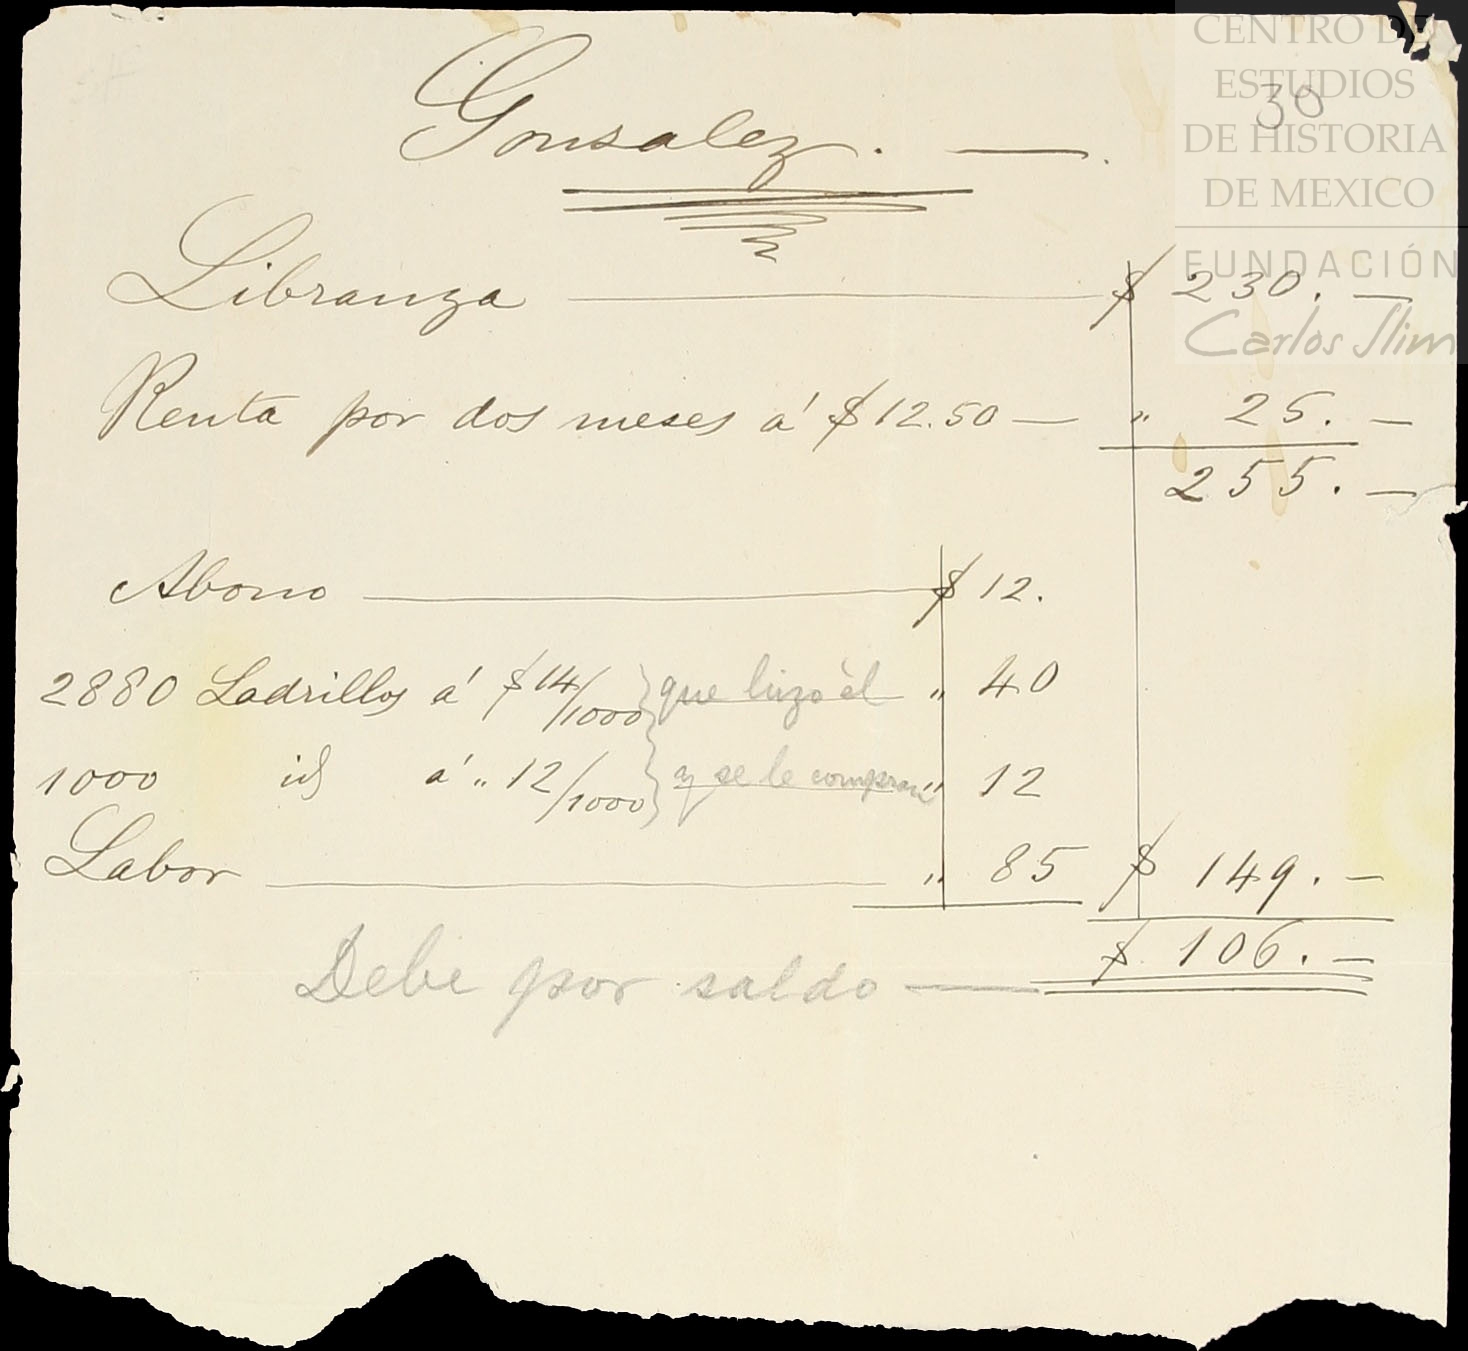 CENTRO DE
ESTUDIOS
30
DE HISTORIA
DE MEXICO
FUNDACIÓN
Carlos Slim
Gonsalez. —.
Libranza — $ 230. —
Renta por dos meses á $12.50 — " 25. —
255. —
Abono — $ 12.
2880 Ladrillos á $14/1000 } que hizo él " 40
1000 id á " 12/1000 } y se le compran " 12
Labor — " 85 $ 149. —
Debe por saldo — $ 106. —